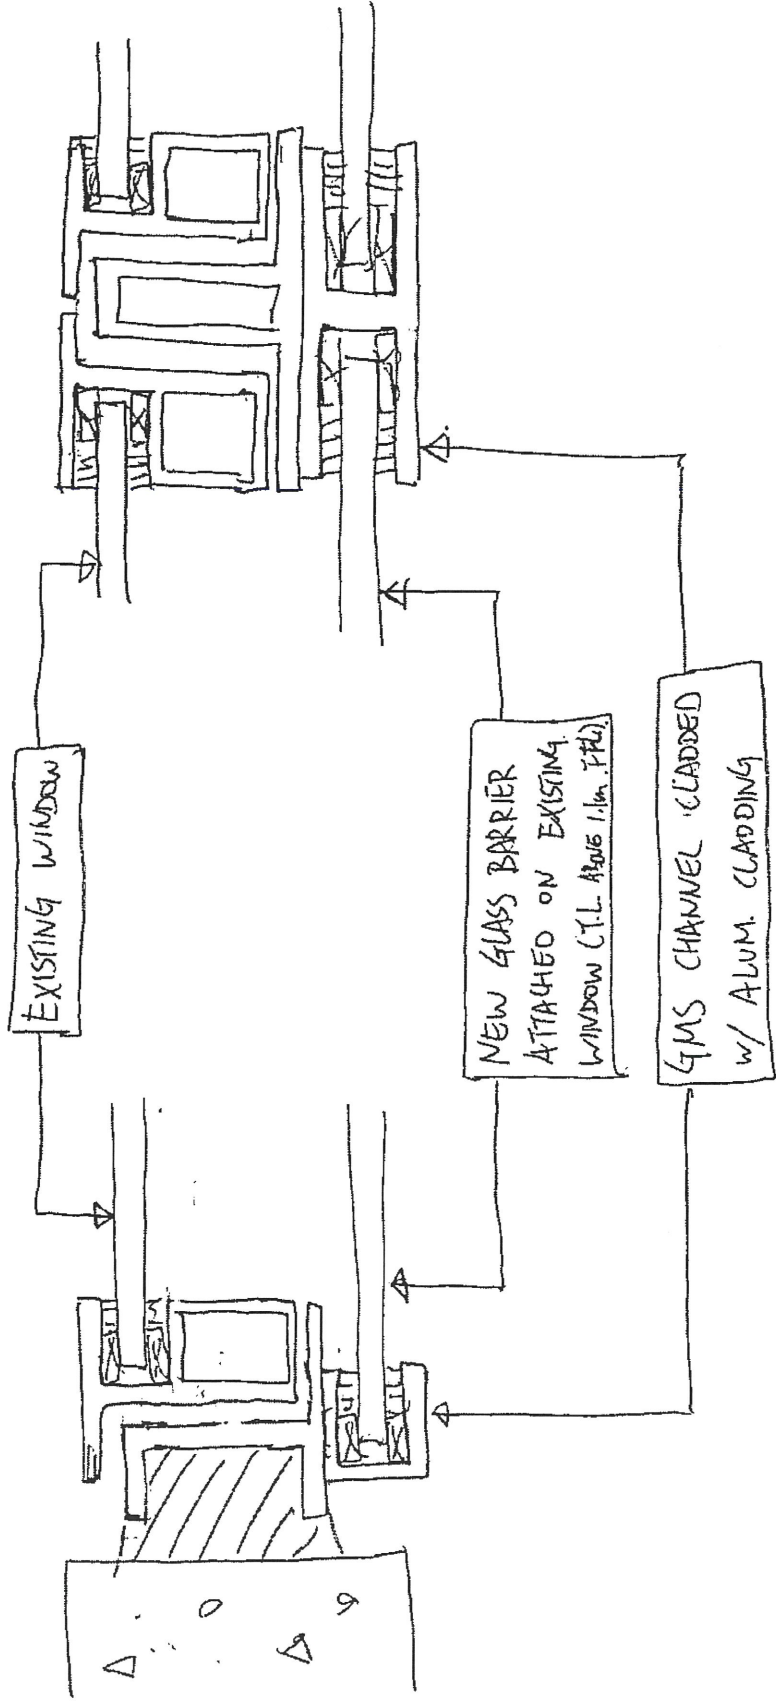 EXISTING WINDOW
NEW GLASS BARRIER
ATTACHED ON EXISTING
WINDOW (T.L. ABOVE 1.1m FFL).
GMS CHANNEL CLADDED
W/ ALUM. CLADDING